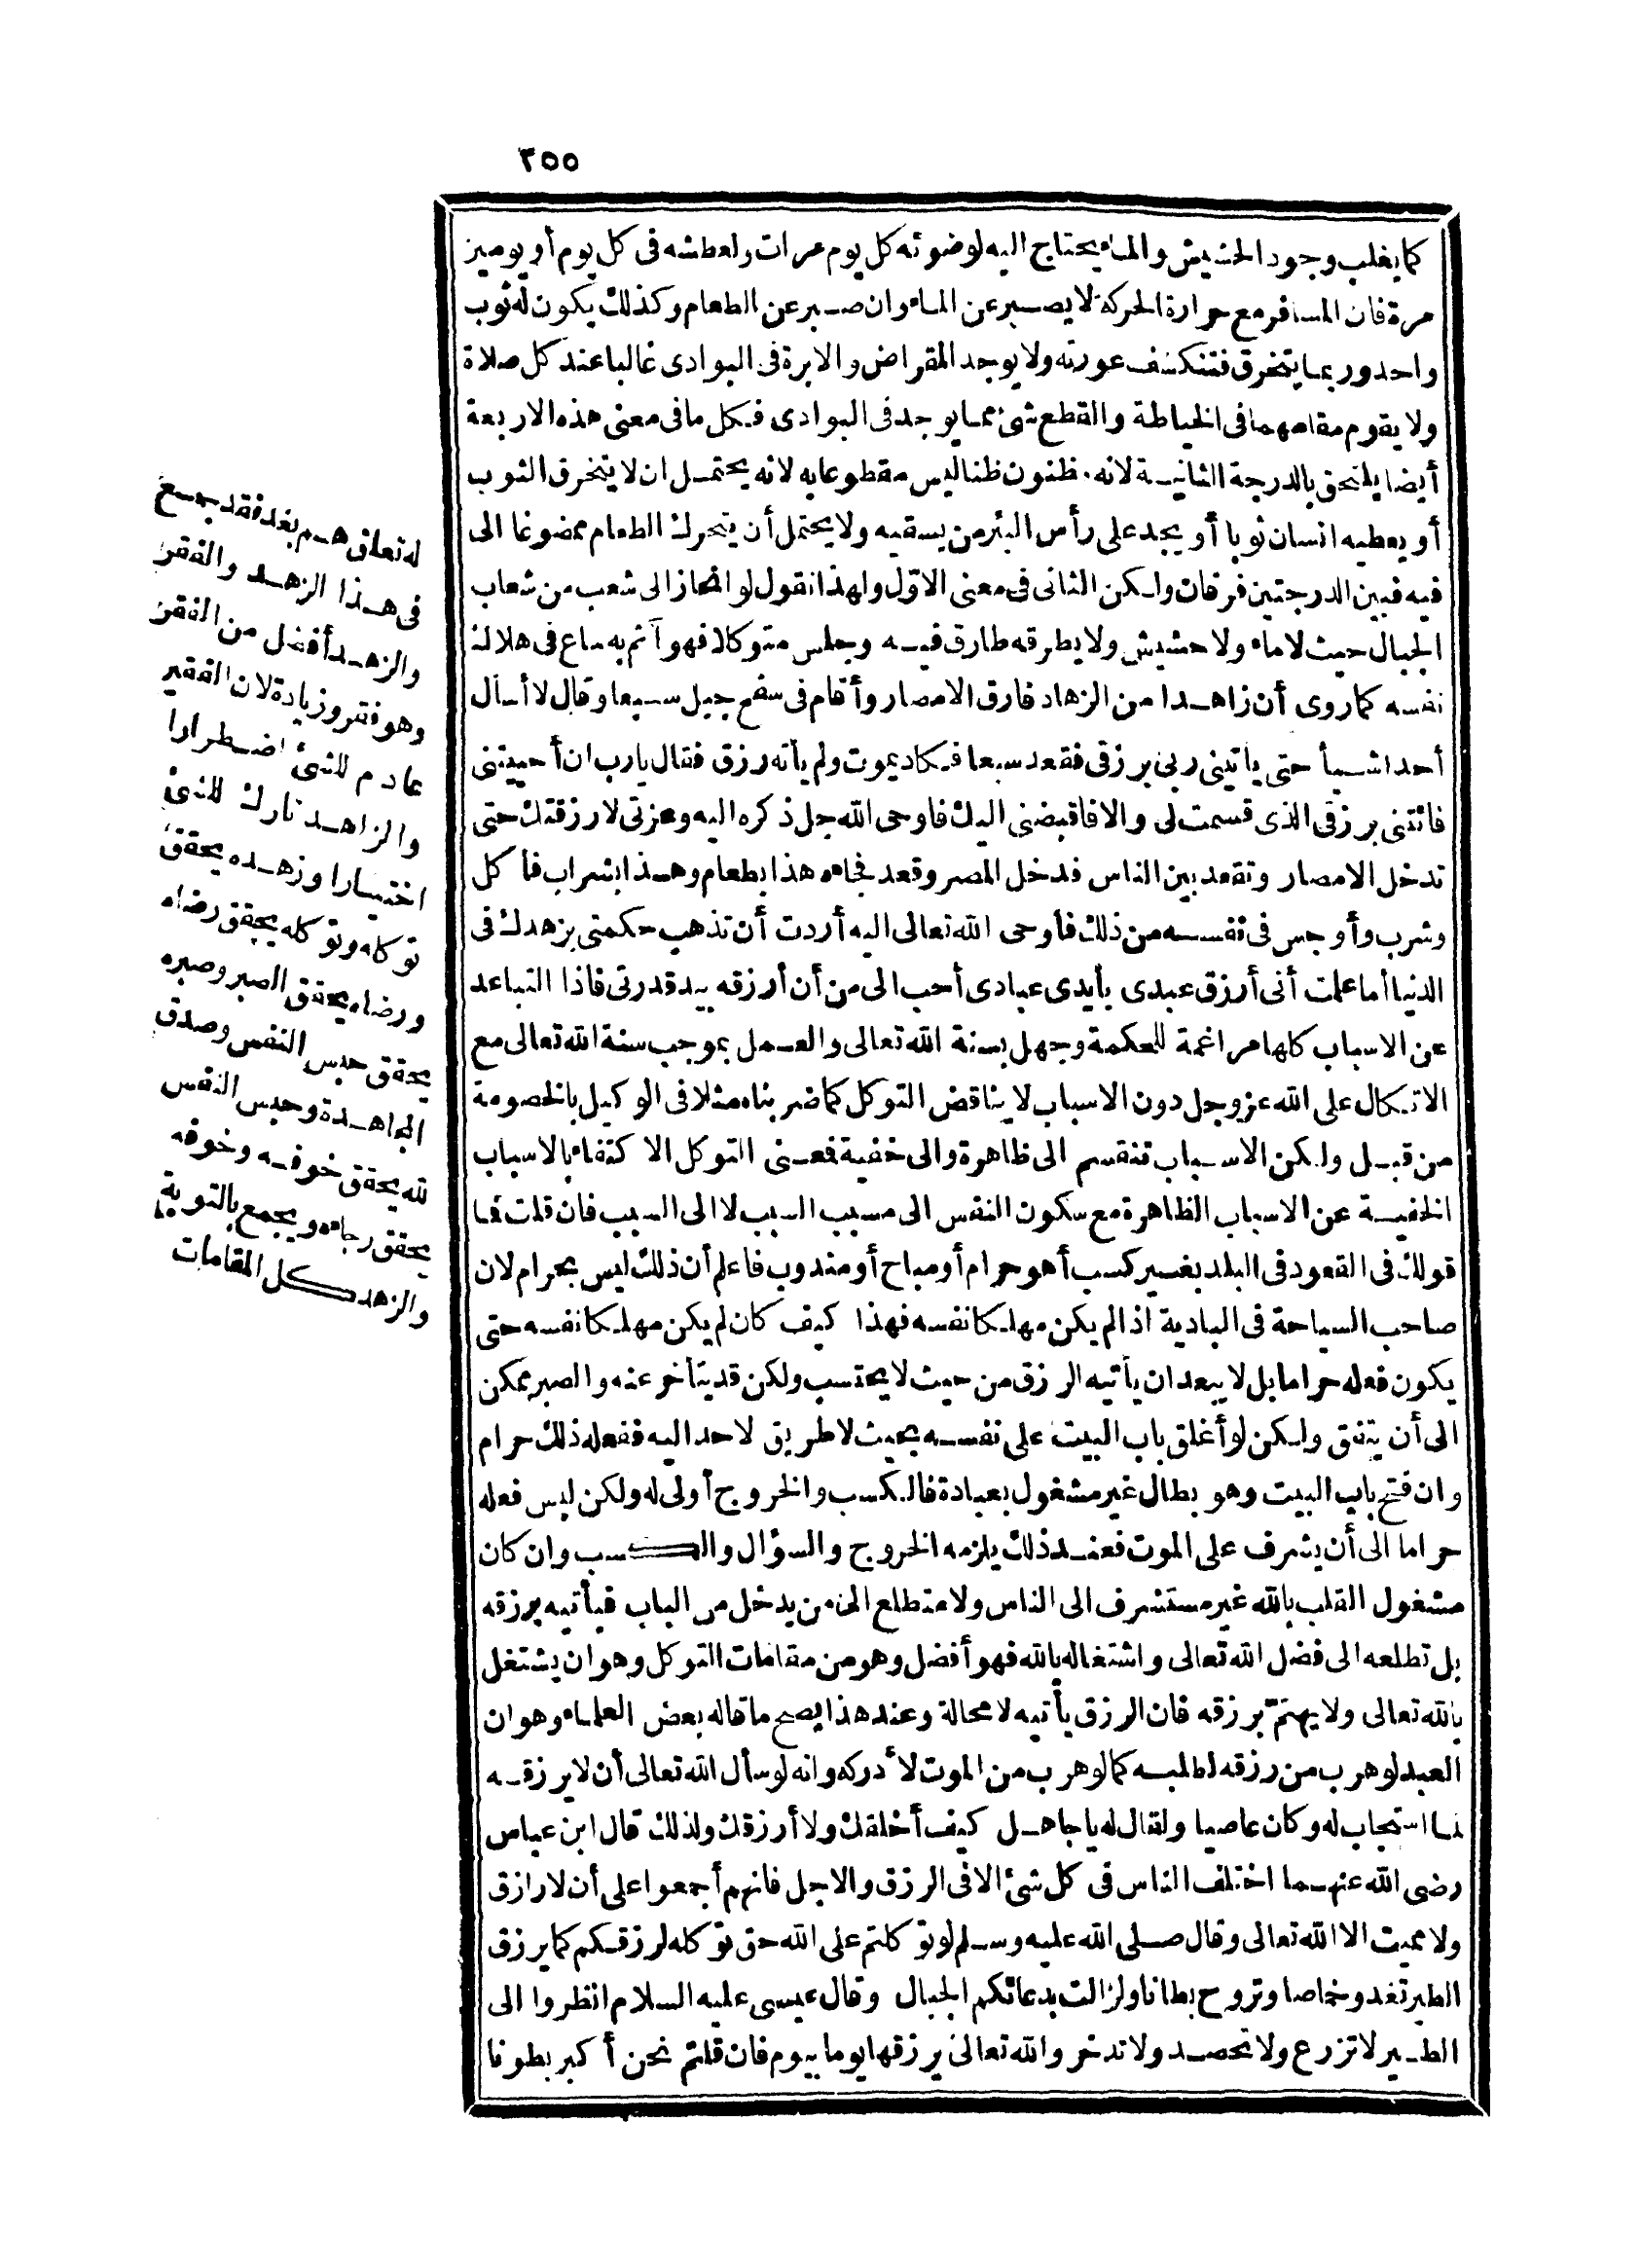 ٢٥٥
كما يغلب وجود الحشيش والماء يحتاج اليه لوضوئه كل يوم مرات ولعطشه فى كل يوم أو يومين
مرة فان المسافر مع حرارة الحركة لا يصبر عن الماء وان صبر عن الطعام وكذلك يكون له ثوب
واحد وربما يتخرق فتنكشف عورته ولا يوجد المقراض والابرة فى البوادى غالبا عند كل صلاة
ولا يقوم مقامهما فى الخياطة والقطع شئ مما يوجد فى البوادى فكل ما فى معنى هذه الاربعة
أيضا يلتحق بالدرجة الثانية لانه مظنون ظنا ليس مقطوعا به لانه يحتمل ان لا يتخرق الثوب
أو يعطيه انسان ثوبا أو يجد على رأس البئر من يسقيه ولا يحتمل أن يتحرك الطعام ممضوغا الى
فيه فبين الدرجتين فرقان ولكن الثانى فى معنى الاوّل ولهذا نقول لو انحاز الى شعب من شعاب
الجبال حيث لا ماء ولا حشيش ولا يطرقه طارق فيه وجلس متوكلا فهو آثم به ساع فى هلاك
نفسه كما روى أن زاهدا من الزهاد فارق الامصار وأقام فى سفح جبل سبعا وقال لا أسأل
أحدا شيأ حتى يأتينى ربى برزقى فقعد سبعا فكاد يموت ولم يأته رزق فقال يارب ان أحييتنى
فائتنى برزقى الذى قسمت لى والا فاقبضنى اليك فاوحى الله جل ذكره اليه وعزتى لا رزقتك حتى
تدخل الامصار وتقعد بين الناس فدخل المصر وقعد فجاءه هذا بطعام وهذا بشراب فأكل
وشرب وأوجس فى نفسه من ذلك فأوحى الله تعالى اليه أردت أن تذهب حكمتى بزهدك فى
الدنيا أما علمت أنى أرزق عبدى بأيدى عبادى أحب الى من أن أرزقه بيد قدرتى فاذا التباعد
عن الاسباب كلها مراغمة للحكمة وجهل بسنة الله تعالى والعمل بموجب سنة الله تعالى مع
الاتكال على الله عز وجل دون الاسباب لا يناقض التوكل كما ضربناه مثلا فى الوكيل بالخصومة
من قبل ولكن الاسباب تنقسم الى ظاهرة والى خفية فمعنى التوكل الاكتفاء بالاسباب
الخفية عن الاسباب الظاهرة مع سكون النفس الى مسبب السبب لا الى السبب فان قلت فما
قولك فى القعود فى البلد بغير كسب أهو حرام أو مباح أو مندوب فاعلم أن ذلك ليس بحرام لان
صاحب السياحة فى البادية اذا لم يكن مهلكا نفسه فهذا كيف كان لم يكن مهلكا نفسه حتى
يكون فعله حراما بل لا يبعد ان يأتيه الرزق من حيث لا يحتسب ولكن قد يتأخر عنه والصبر ممكن
الى أن يتفق ولكن لو أغلق باب البيت على نفسه بحيث لا طريق لاحد اليه ففعله ذلك حرام
وان فتح باب البيت وهو بطال غير مشغول بعبادة فالكسب والخروج أولى له ولكن ليس فعله
حراما الى أن يشرف على الموت فعند ذلك يلزمه الخروج والسؤال والكسب وان كان
مشغول القلب بالله غير مستشرف الى الناس ولا متطلع الى من يدخل من الباب فيأتيه برزقه
بل تطلعه الى فضل الله تعالى واشتغاله بالله فهو أفضل وهو من مقامات التوكل وهو ان يشتغل
بالله تعالى ولا يهتمّ برزقه فان الرزق يأتيه لا محالة وعند هذا يصح ما قاله بعض العلماء وهو ان
العبد لو هرب من رزقه لطلبه كما لو هرب من الموت لأدركه وانه لو سأل الله تعالى أن لا يرزقه
لما استجاب له وكان عاصيا ولقال له يا جاهل كيف أخلقك ولا أرزقك ولذلك قال ابن عباس
رضى الله عنهما اختلف الناس فى كل شئ الا فى الرزق والاجل فانهم أجمعوا على أن لا رازق
ولا مميت الا الله تعالى وقال صلى الله عليه وسلم لو توكلتم على الله حق توكله لرزقكم كما يرزق
الطير تغدو خماصا وتروح بطانا ولزالت بدعائكم الجبال وقال عيسى عليه السلام انظروا الى
الطير لا تزرع ولا تحصد ولا تدخر والله تعالى يرزقها يوما بيوم فان قلتم نحن أكبر بطونا
له تعلق هم بغد فقد جمع
فى هذا الزهد والفقر
والزهد أفضل من الفقر
وهو فقر وزيادة لان الفقير
عادم للشئ اضطرارا
والزاهد تارك للشئ
اختيارا وزهده يحقق
توكله وتوكله يحقق رضاه
ورضاه يحقق الصبر وصبره
يحقق حبس النفس وصدق
المجاهدة وحبس النفس
لله يحقق خوفه وخوفه
يحقق رجاءه ويجمع بالتوبة
والزهد كل المقامات